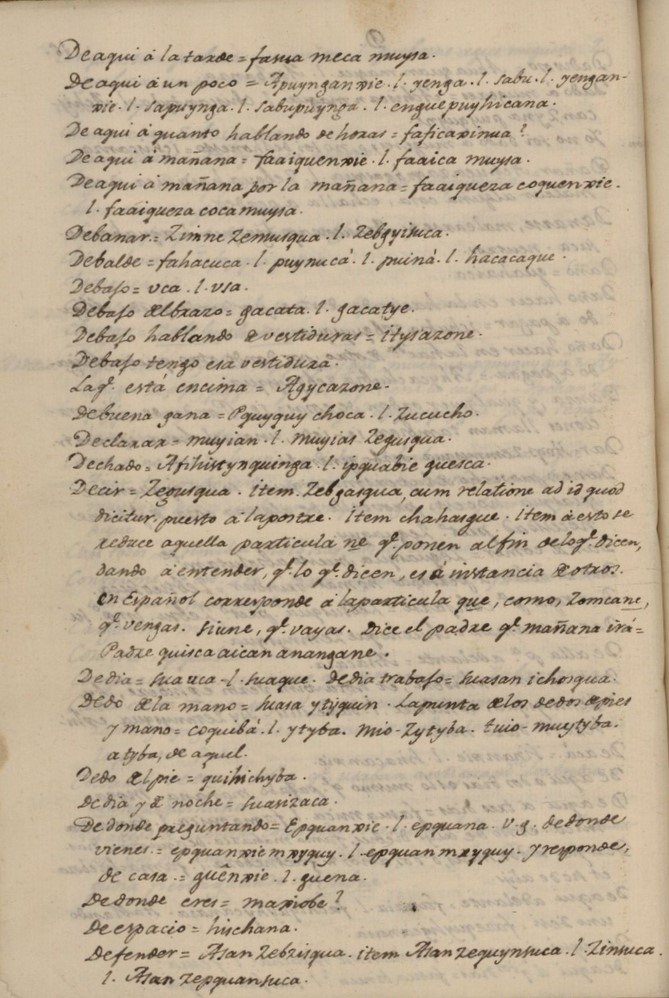 De aqui á la tarde = fasua meca muysa.
De aqui á un poco = Apuynganxie . l . yenga . l . sabu . l . yengan-
xie . l . sapuynga . l . sabupuynga . l . enguepuyhicana .
De aqui á quanto hablando de horas = faficaxinua ?
De aqui á mañana = faaiquenxie . l . faaica muysa .
De aqui á mañana por la mañana = faaiqueza coquenxie .
l . faaiqueza cocamuysa .
Debanar = Zimne zemusqua . l . Zebgyisuca .
Debalde = fahacuca . l . puynucá . l . puiná . l . hacacaque .
Debaso = uca . l . usa .
Debaso del brazo = gacata . l . gacatye .
Debaso hablando de vestiduras = itysazone .
Debaso tengo esa vestidura .
La q.e está encima = Agycazone .
de buena gana = Pquyquy choca . l . Zucucho .
Declarar = muyian . l . muyias zegusqua .
Dechado = Afihistynquinga . l . ipquabie quesca .
Decir = Zegusqua . item . Zebgasqua, cum relatione ad id quod
dicitur . puesto á la postre . item chahasgue . item á esto se
reduce aquella particula ne q.e ponen al fin de lo q.e dicen,
dando á entender, q.e lo q.e dicen, es á instancia de otros .
en Español corresponde á la particula que, como, zomcane,
q.e vengas . siune, q.e vayas . Dice el padre q.e mañana irá =
Padre guisca aican anangane .
De dia = suauca - l . suaque . de dia trabaso = suasan ichosqua .
Dedo de la mano = suasa ytyquin . La punta de los dedos de pies
y mano = coquibá . l . ytyba . mio - Zytyba . tuio - muytyba .
atyba, de aquel .
Dedo del pie = quihichyba .
de dia y de noche = suasizaca .
De donde preguntando = Epquanxie . l . epquana . v . g . de donde
vienes = epquanxie mxyquy . l . epquan mxyquy . y responde,
de casa = guênxie . l . guena .
De donde eres = maxiobe ?
de espacio = hischana .
Defender = Asan zebzisqua . item Asan zequynsuca . l . Zinsuca .
l . Asan zepquansuca .